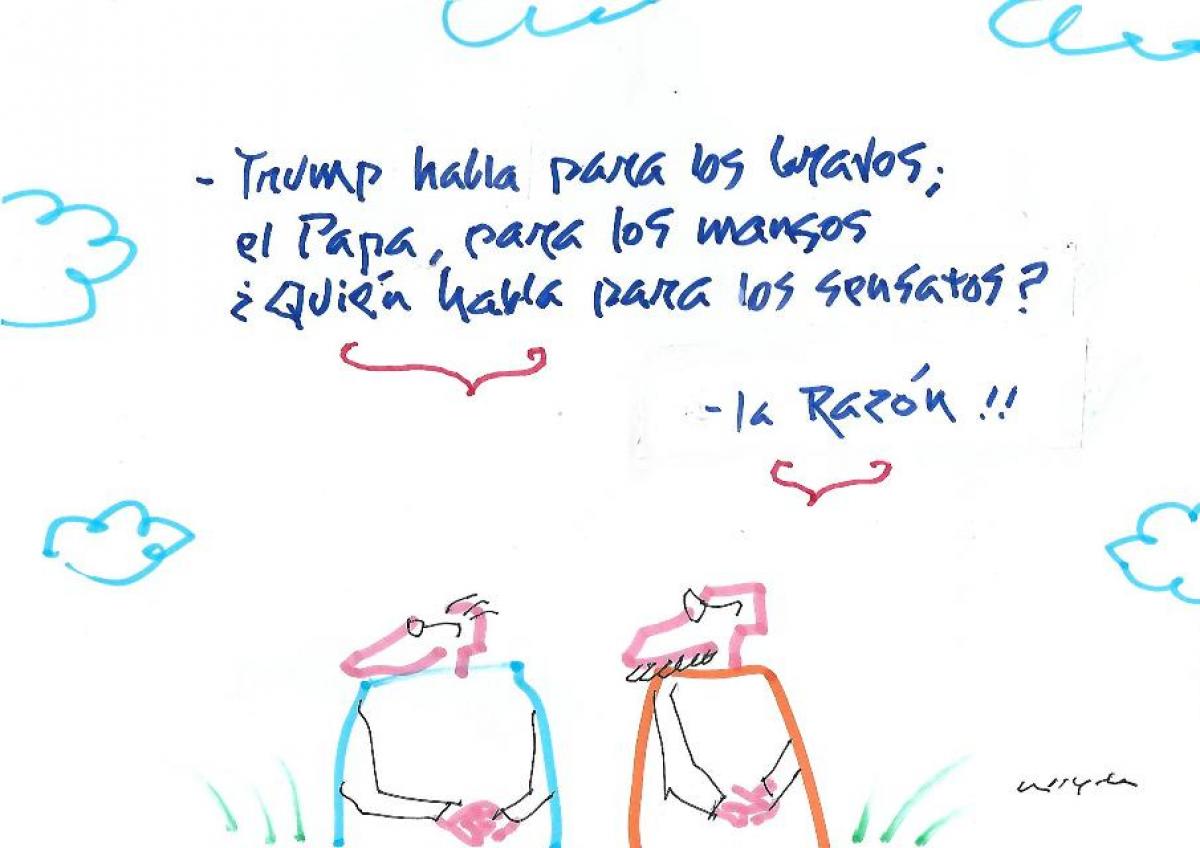 - Trump habla para los bravos;
el Papa, para los mansos
¿Quién habla para los sensatos?
- la Razón !!